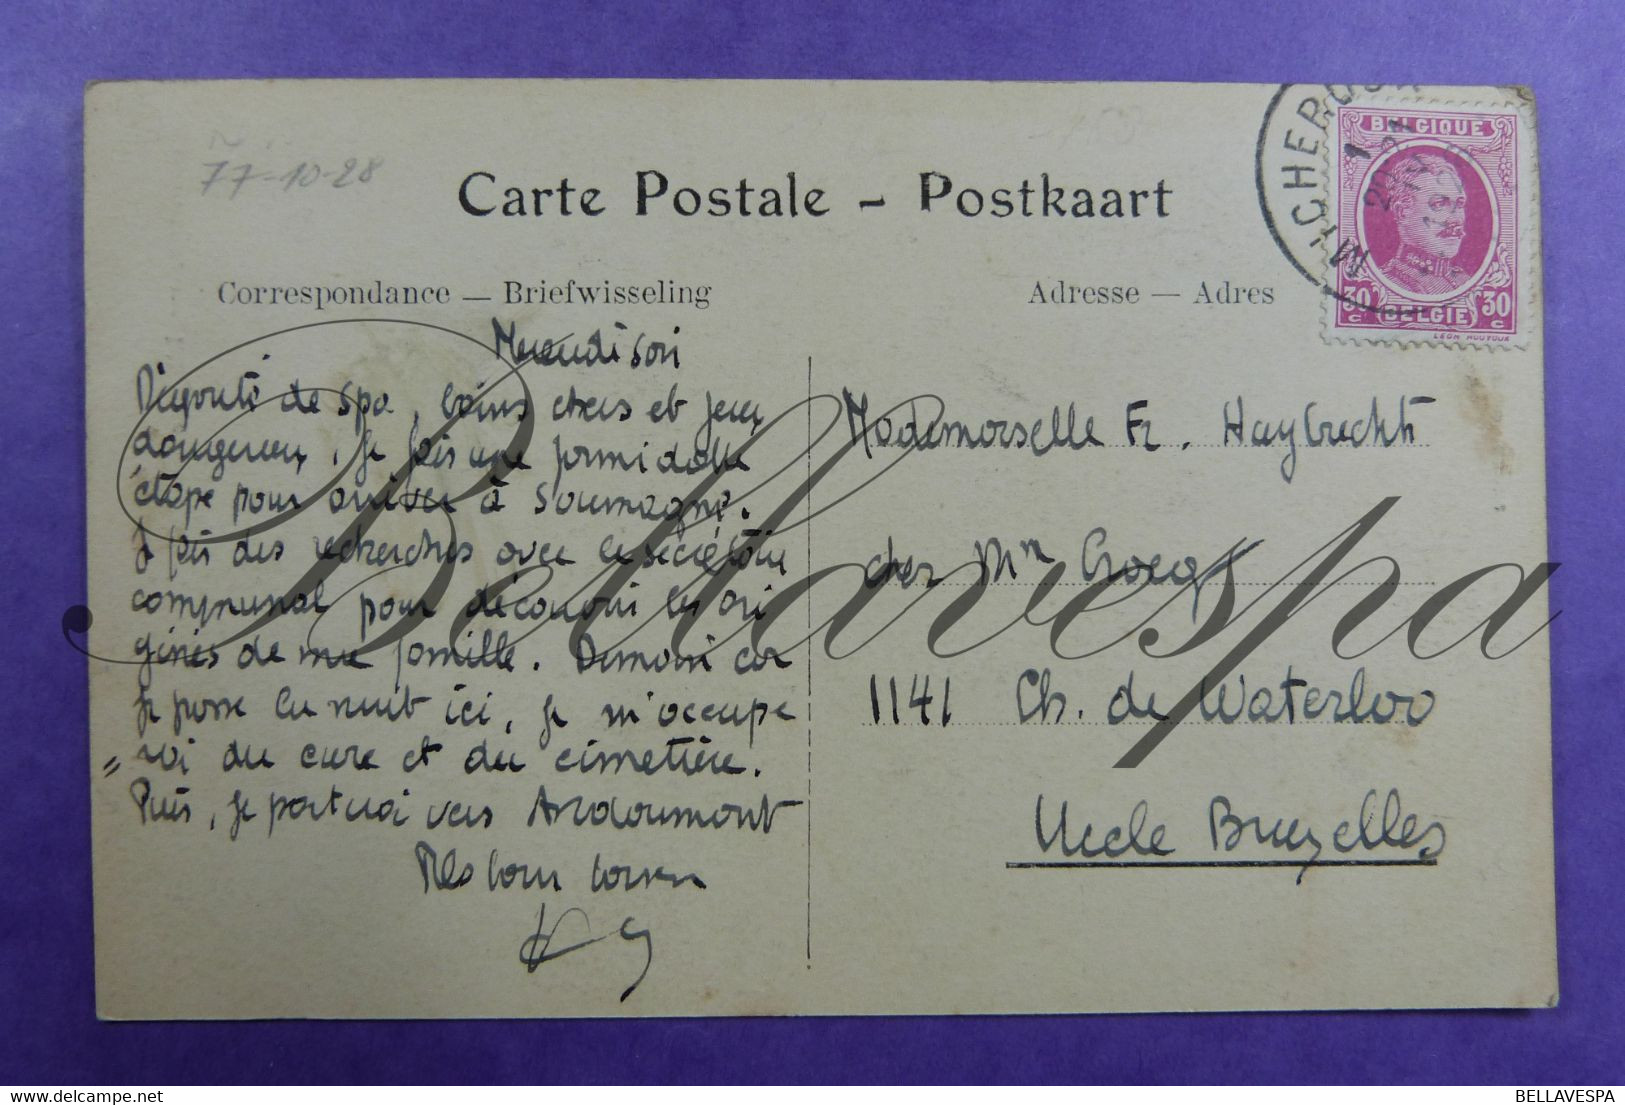 77-10-28
Carte Postale - Postkaart
Correspondance — Briefwisseling
Adresse — Adres
MICHEROUX
1
BELGIQUE
30 c BELGIE 30 c
Mercredi soir
Dégouté de Spa, bains chers et jeux
dangereux, je fais une formidable
étape pour arriver à Soumagne.
Je fais des recherches avec le secrétaire
communal pour découvrir les ori
gines de ma famille. Demain car
je passe la nuit ici, je m'occupe
=rai du curé et du cimetière.
Puis, je partirai vers Andoumont
Mes bons baisers
Mademoiselle Fr. Huybrechts
chez Mme Crocq
1141 Ch. de Waterloo
Uccle Bruxelles
Bellavespa
BELLAVESPA